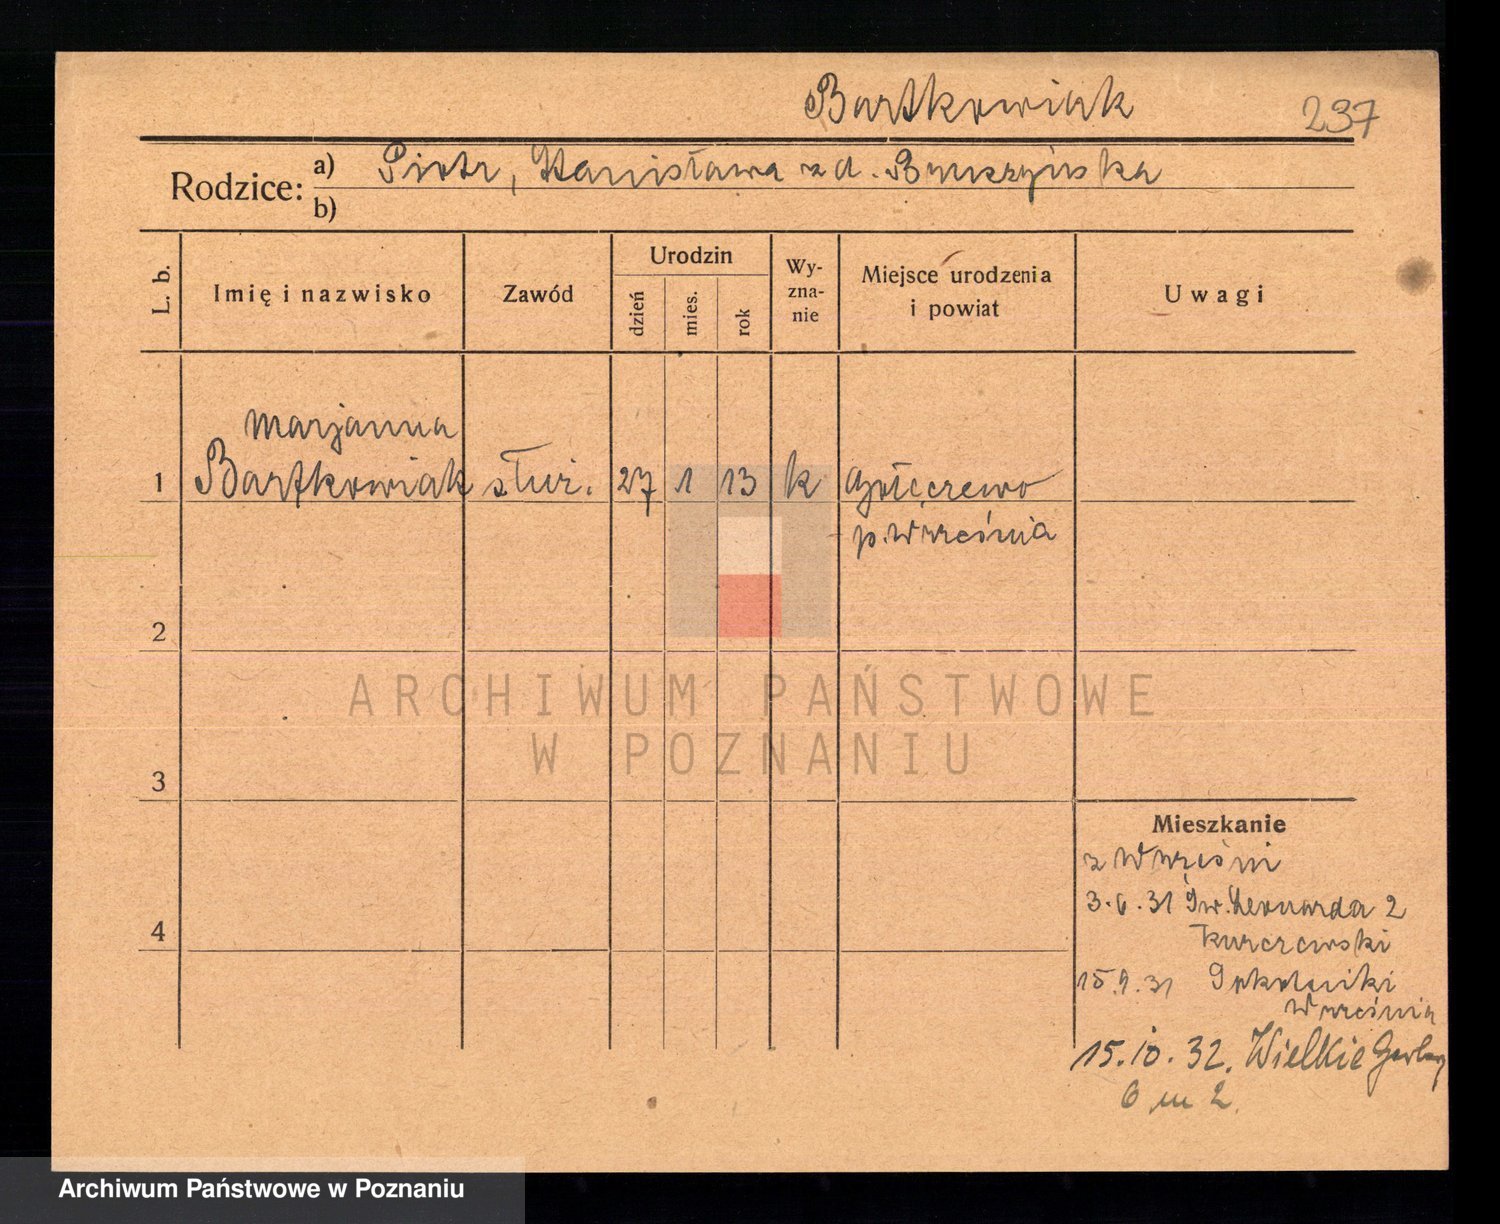 Bartkowiak 237
Rodzice: a) Piotr, Stanisława z d. Bruszyńska
b)
L. b.
Imię i nazwisko
Zawód
Urodzin
dzień
mies.
rok
Wy-
zna-
nie
Miejsce urodzenia
i powiat
Uwagi
Marjanna
1 Bartkowiak służ. 27 1 13 k
p. Września
2
ARCHIWUM PAŃSTWOWE
W POZNANIU
3
4
Mieszkanie
z Wrześni
3.6.31 Św. Leonarda 2
Kurczewski
15.9.31 Sokolniki
Września
15.10.32. Wielkie Garbary
6 m 2.
Archiwum Państwowe w Poznaniu